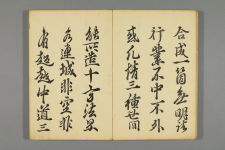 合成一箇無明法
行業不中不外
或凡情三種世間
能所造十方法界
為連城非空非
有超越中道三